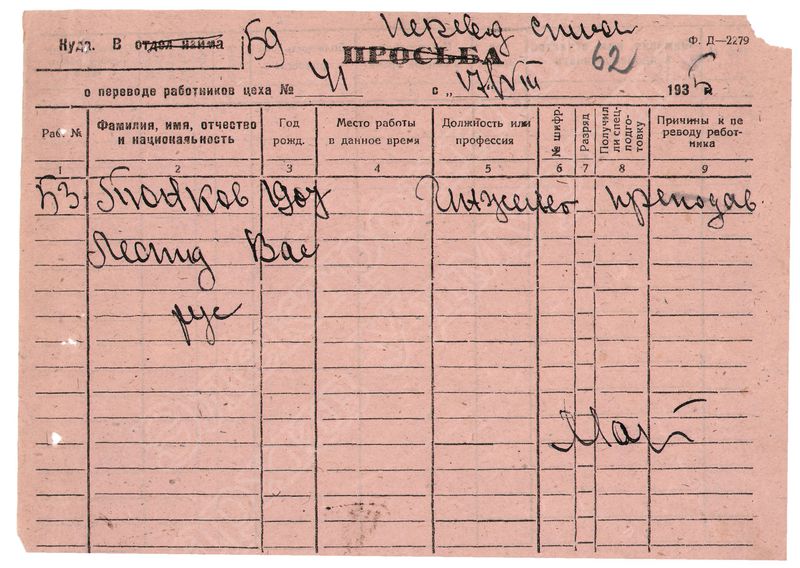 Перевод списк
Куда. В отдел найма 59
ПРОСЬБА 62 Ф. Д—2279
о переводе работников цеха № 41 с „17/VIII 1935 г.
Раб. № Фамилия, имя, отчество и национальность Год рожд. Место работы в данное время Должность или профессия № шифр. Разряд Получил ли спец-подготовку Причины к переводу работника
1 2 3 4 5 6 7 8 9
53 1907 Инженер преподав
Леонид Вас
рус